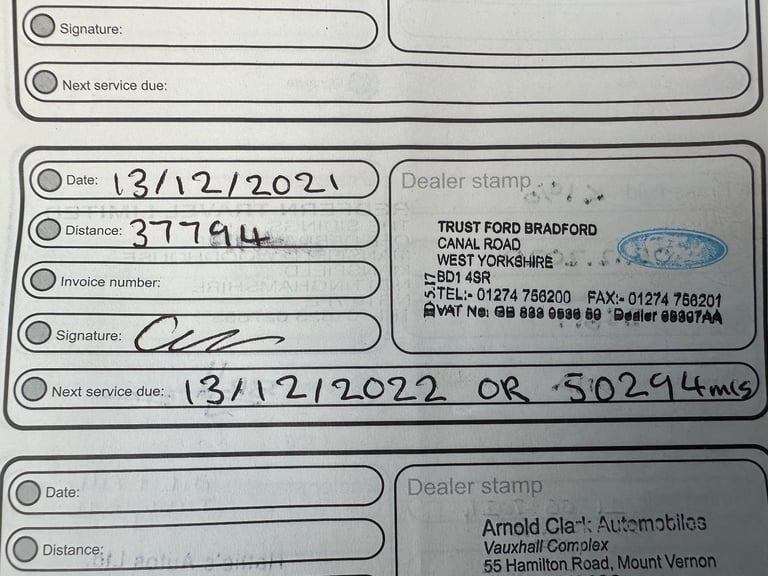 Signature:
Next service due:
Date: 13/12/2021
Dealer stamp
Distance: 37794
TRUST FORD BRADFORD
CANAL ROAD
WEST YORKSHIRE
BD1 4SR
TEL:- 01274 756200 FAX:- 01274 756201
VAT No: GB 889 0536 59 Dealer 69307AA
Invoice number:
Signature:
Next service due: 13/12/2022 OR 50294mls
Date:
Dealer stamp
Arnold Clark Automobiles
Vauxhall Complex
55 Hamilton Road, Mount Vernon
Distance: